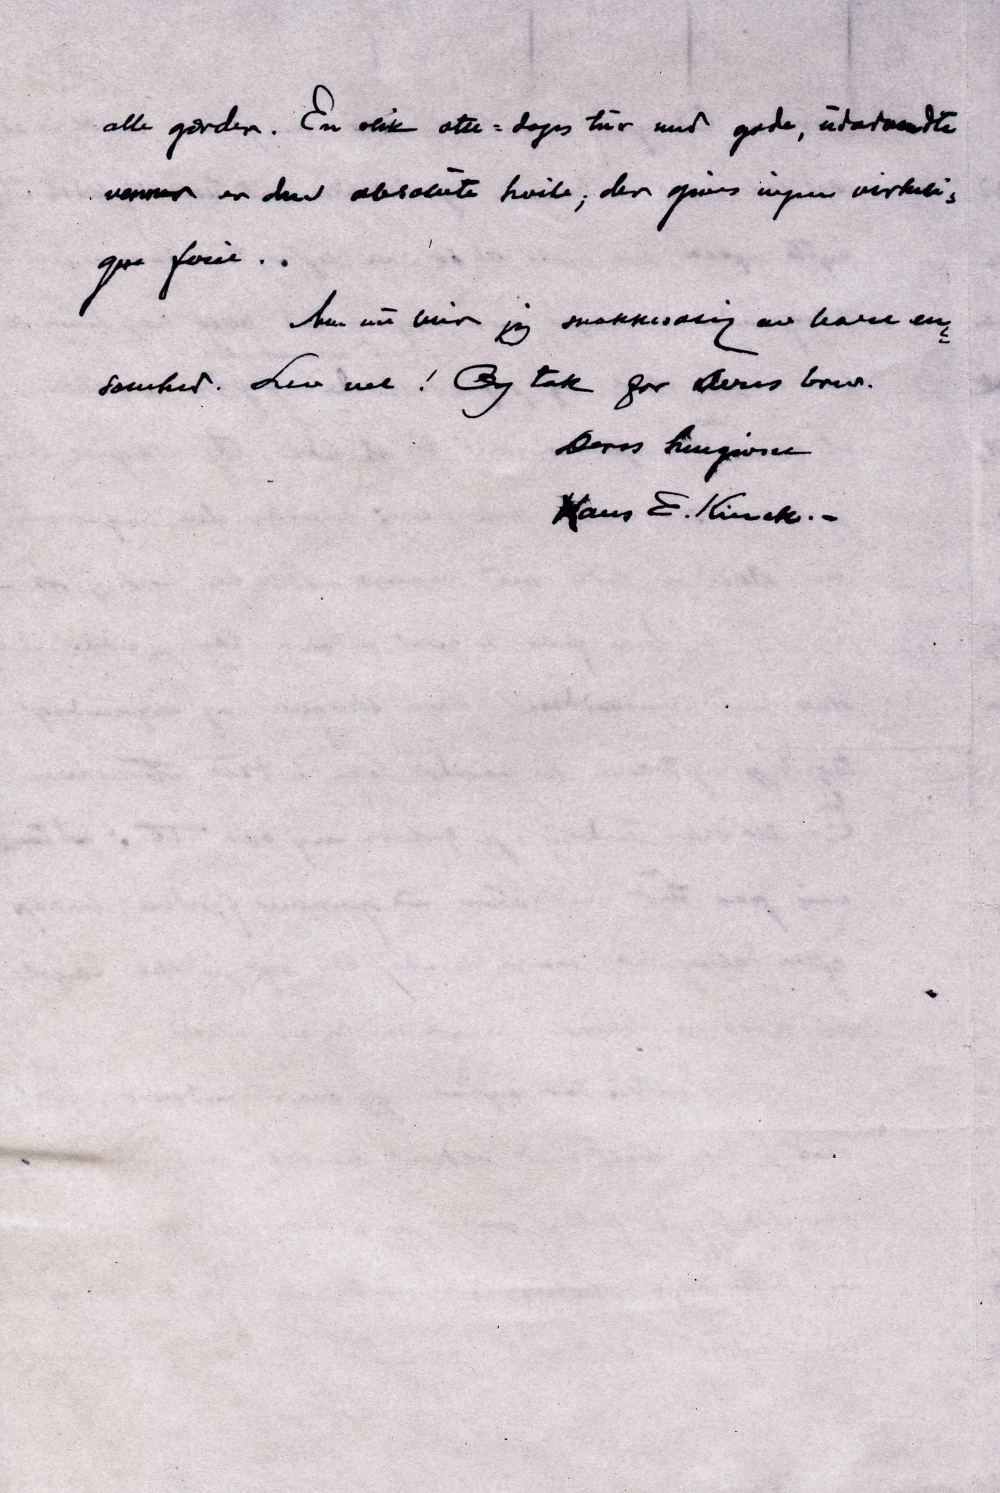 alle gærder. En slik otte=dages tür med gode, üdadvendte
venner er den absolüte hvile; der gives ingen virkeli=
gere ferie..
Men nü blir jeg snakkesalig av bare en=
somhed. Lev vel! Og tak for Deres brev.
Deres hengivne
Hans E. Kinck.-